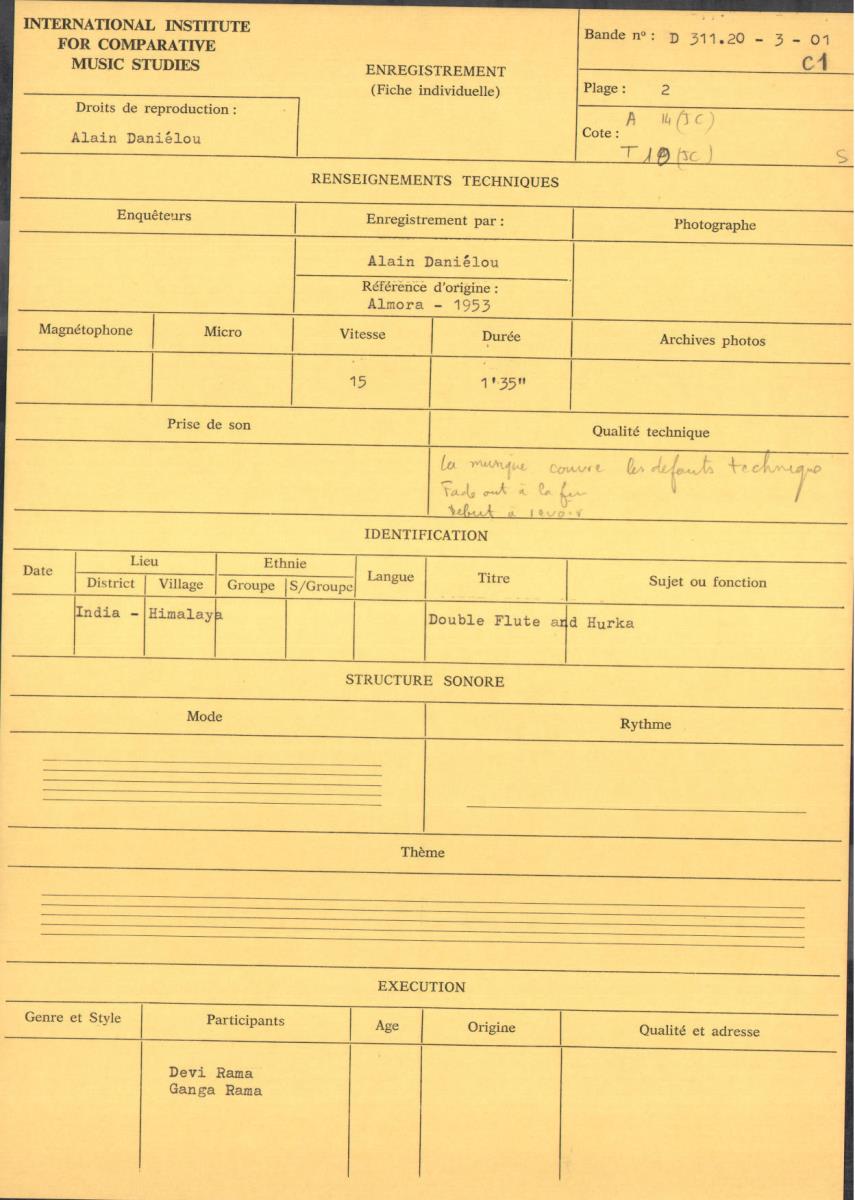 INTERNATIONAL INSTITUTE
FOR COMPARATIVE
MUSIC STUDIES
Droits de reproduction :
Alain Daniélou
ENREGISTREMENT
(Fiche individuelle)
Bande nº : D 311.20 - 3 - 01
C1
Plage : 2
A 14 (JC)
Cote :
T 10 (JC) S
RENSEIGNEMENTS TECHNIQUES
Enquêteurs
Enregistrement par :
Photographe
Alain Daniélou
Référence d'origine :
Almora - 1953
Magnétophone
Micro
Vitesse
Durée
Archives photos
15
1'35"
Prise de son
Qualité technique
la musique couvre les défauts technique
Fade out à la fin
Début à revoir
IDENTIFICATION
Date
Lieu
Ethnie
Langue
Titre
Sujet ou fonction
District
Village
Groupe
S/Groupe
India - Himalaya
Double Flute and Hurka
STRUCTURE SONORE
Mode
Rythme
Thème
EXECUTION
Genre et Style
Participants
Age
Origine
Qualité et adresse
Devi Rama
Ganga Rama